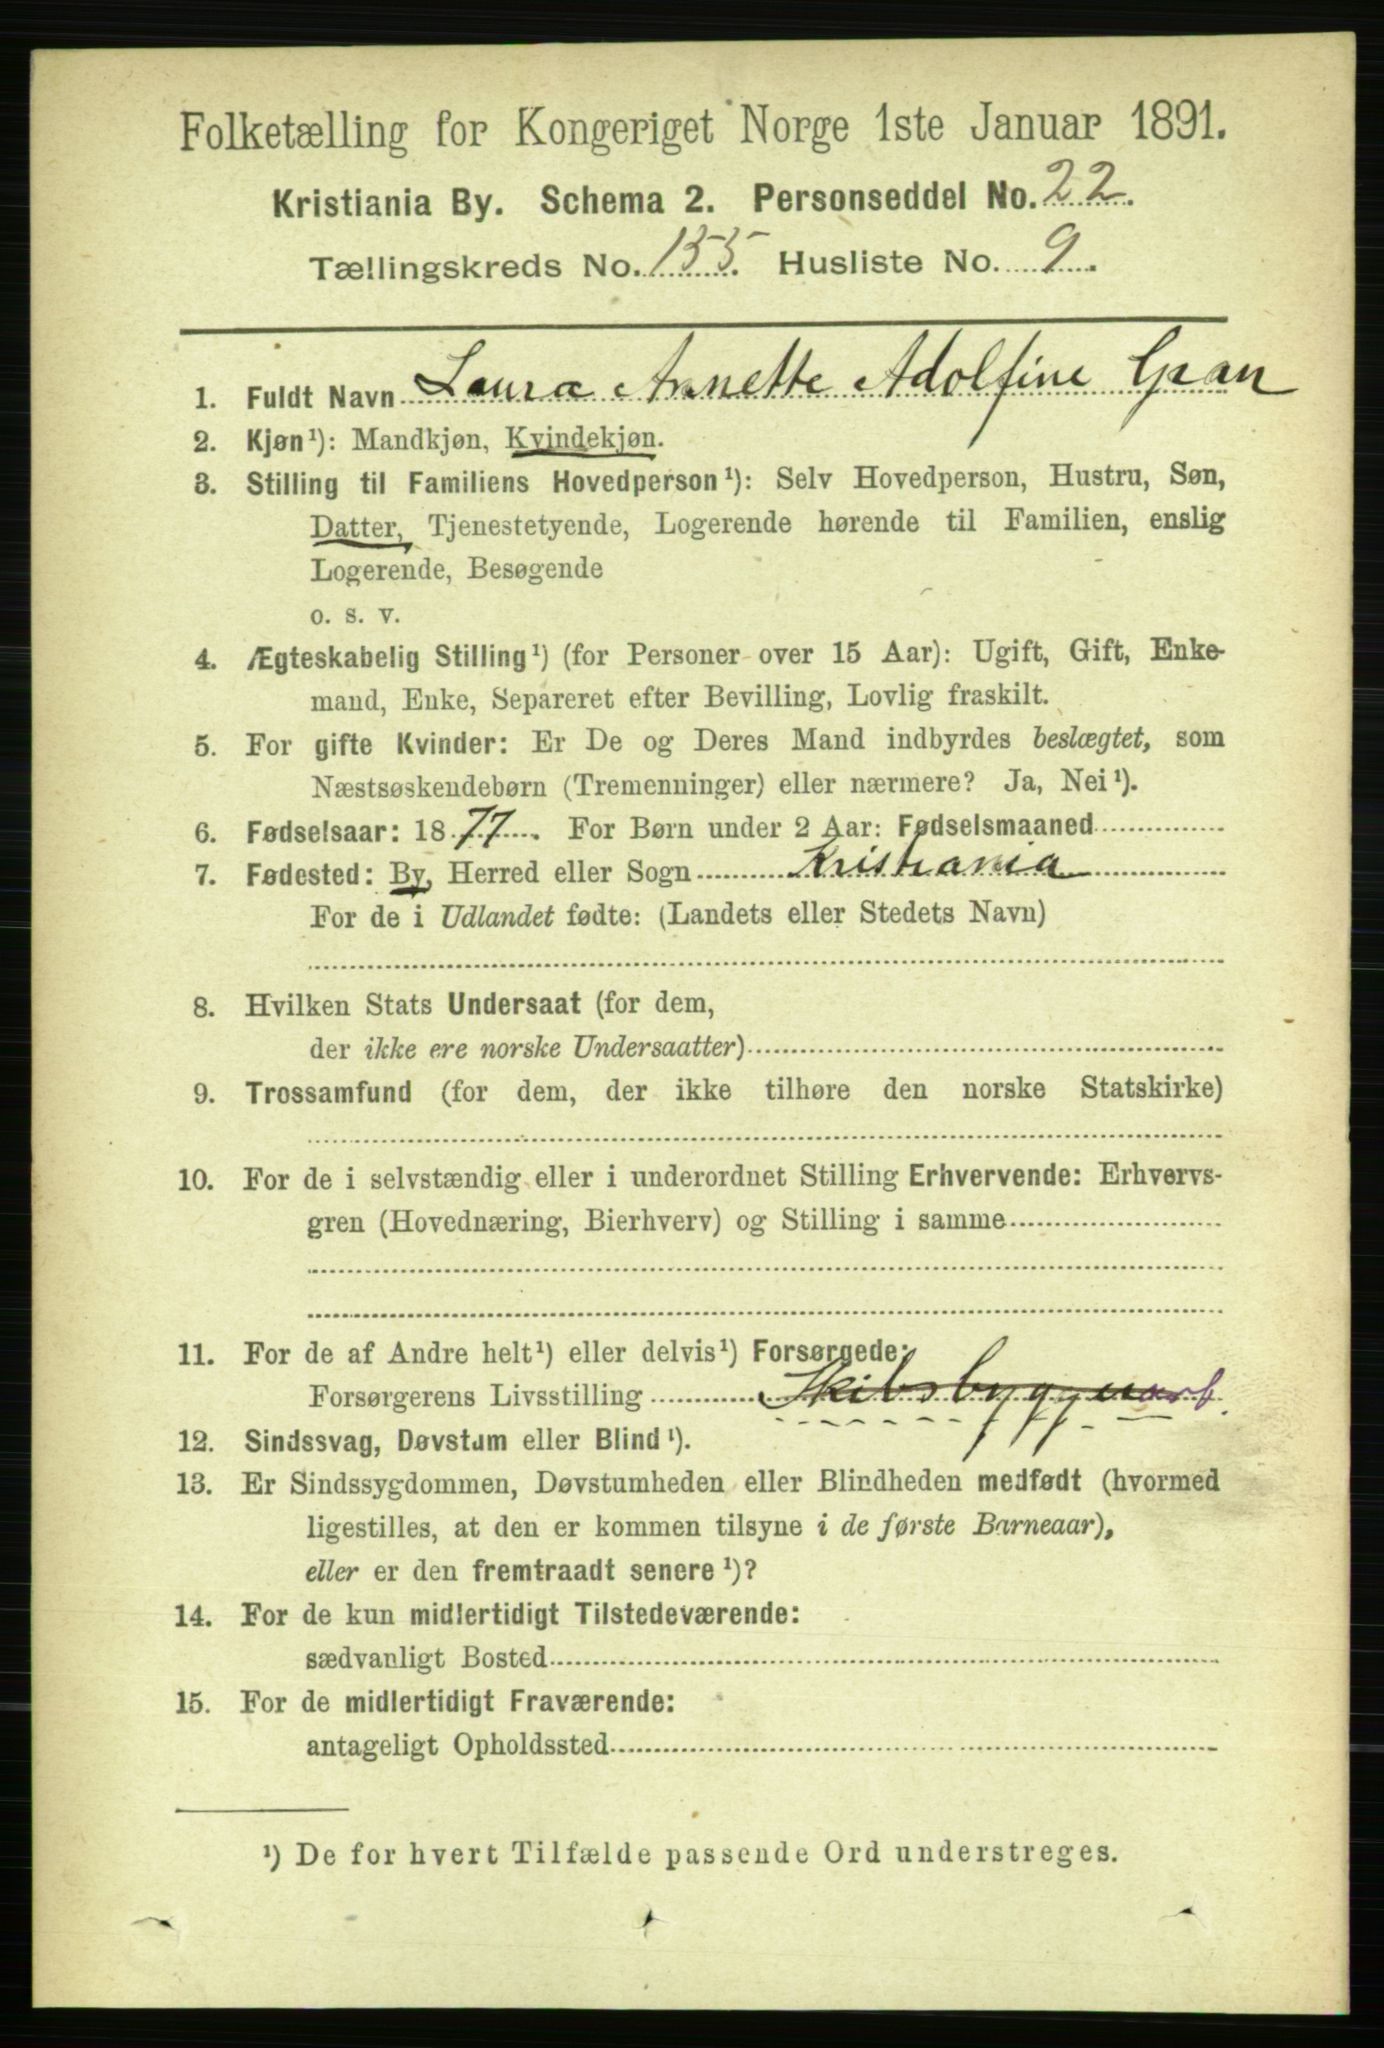 Folketælling for Kongeriget Norge 1ste Januar 1891.
Kristiania By. Schema 2. Personseddel No. 22.
Tællingskreds No. 155. Husliste No. 9.
1. Fuldt Navn Laura Annette Adolfine Gran
2. Kjøn¹): Mandkjøn, Kvindekjøn.
3. Stilling til Familiens Hovedperson¹): Selv Hovedperson, Hustru, Søn,
Datter, Tjenestetyende, Logerende hørende til Familien, enslig
Logerende, Besøgende
o. s. v.
4. Ægteskabelig Stilling¹) (for Personer over 15 Aar): Ugift, Gift, Enke-
mand, Enke, Separeret efter Bevilling, Lovlig fraskilt.
5. For gifte Kvinder: Er De og Deres Mand indbyrdes beslægtet, som
Næstsøskendebørn (Tremenninger) eller nærmere? Ja, Nei¹).
6. Fødselsaar: 1877. For Børn under 2 Aar: Fødselsmaaned
7. Fødested: By, Herred eller Sogn Kristiania
For de i Udlandet fødte: (Landets eller Stedets Navn)
8. Hvilken Stats Undersaat (for dem,
der ikke ere norske Undersaatter)
9. Trossamfund (for dem, der ikke tilhøre den norske Statskirke)
10. For de i selvstændig eller i underordnet Stilling Erhvervende: Erhvervs-
gren (Hovednæring, Bierhverv) og Stilling i samme
11. For de af Andre helt¹) eller delvis¹) Forsørgede:
Forsørgerens Livsstilling
12. Sindssvag, Døvstum eller Blind¹).
13. Er Sindssygdommen, Døvstumheden eller Blindheden medfødt (hvormed
ligestilles, at den er kommen tilsyne i de første Barneaar),
eller er den fremtraadt senere¹)?
14. For de kun midlertidigt Tilstedeværende:
sædvanligt Bosted
15. For de midlertidigt Fraværende:
antageligt Opholdssted
¹) De for hvert Tilfælde passende Ord understreges.